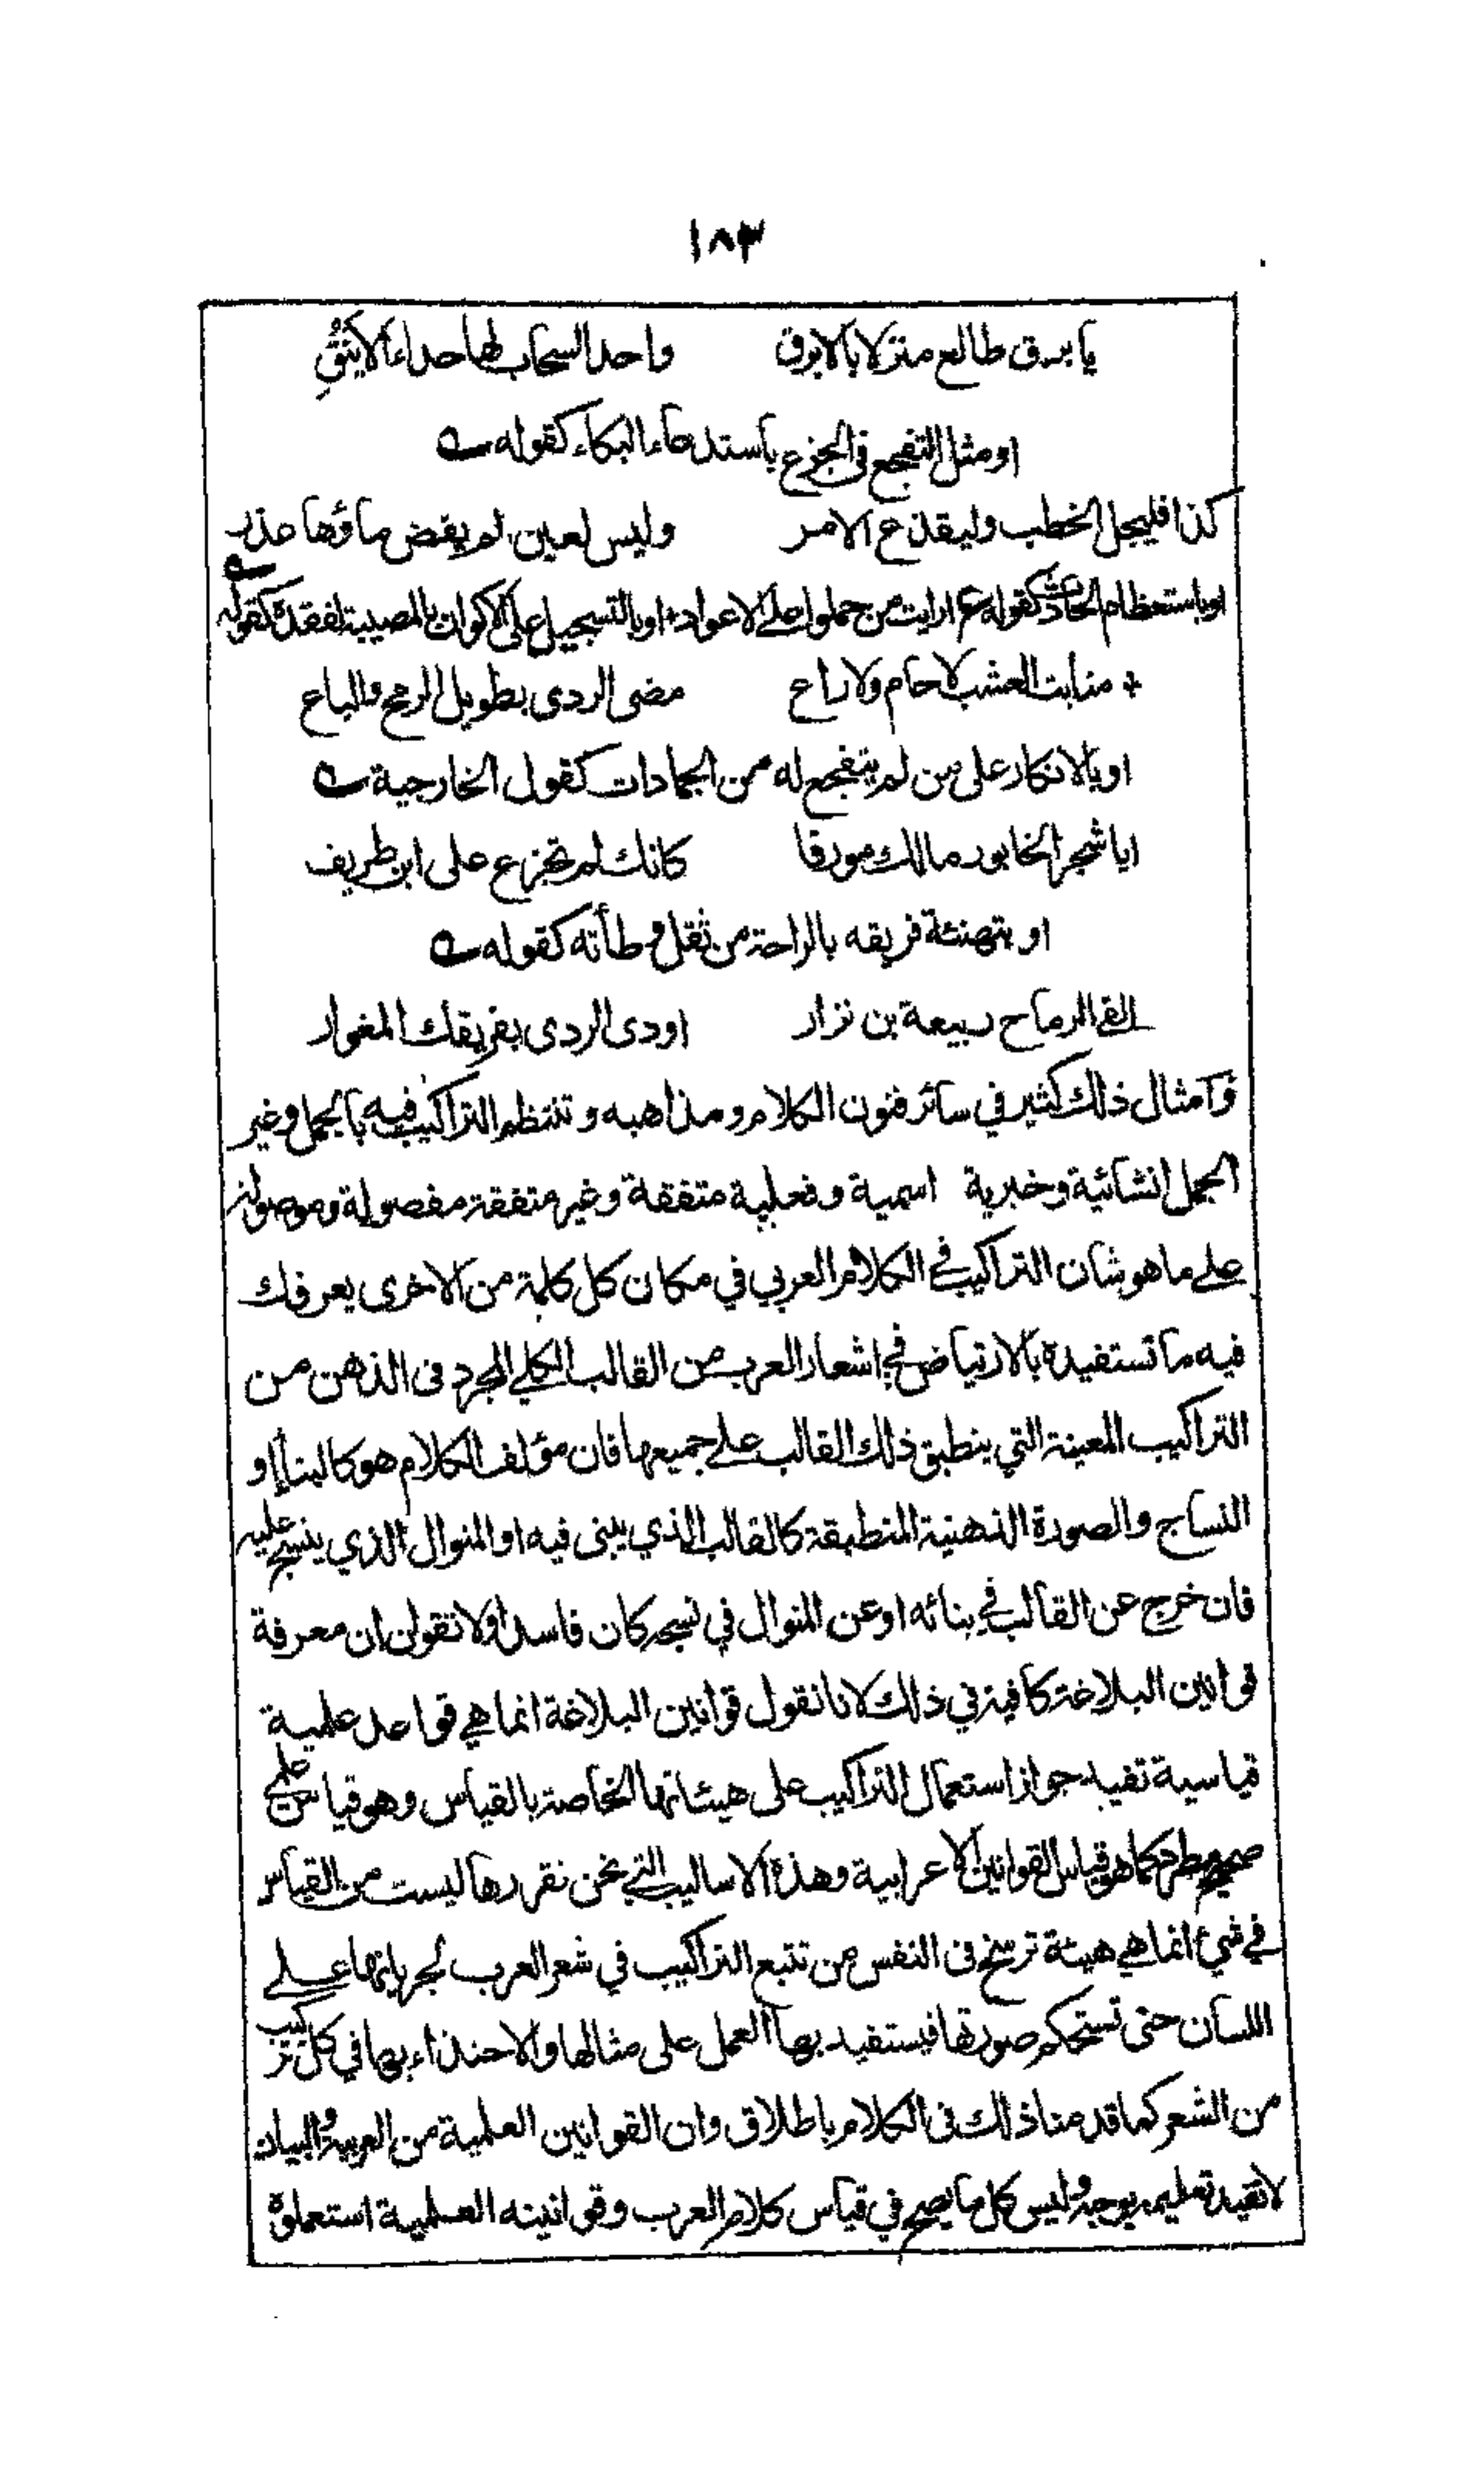 ١٨٣
يا برق طالع منزلا بالابرق واحد السحاب لها حداء الاينق
او مثل التفجع في الجزع باستدعاء البكاء كقوله
كذا فليجل الخطب وليقدح الامر وليس لعين لم يفض ماؤها عذر
او باستعظام الحادث كقوله ع ارايت من حملوا على الاعواد + او بالتسجيل على الاكوان بالمصيبة لفقده كقوله
+ منابت العشب لا حام ولا راع مضى الردى بطويل الرمح والباع
او بالانكار على من لم يتفجع له من الجمادات كقول الخارجية
ايا شجر الخابور مالك مورقا كانك لم تجزع على ابن طريف
او بتهنئة فريقه بالراحة من ثقل وطأته كقوله
القى الرماح ربيعة بن نزار اودى الردى بفريقك المغوار
وامثال ذلك كثير في سائر فنون الكلام ومذاهبه وتنتظم التراكيب فيه بالجمل وغير
الجمل انشائية وخبرية اسمية وفعلية متفقة وغير متفقة مفصولة وموصولة
على ما هو شان التراكيب في الكلام العربي في مكان كل كلمة من الاخرى يعرفك
فيه ما تستفيده بالارتياض في اشعار العرب من القالب الكلي المجرد في الذهن من
التراكيب المعينة التي ينطبق ذلك القالب على جميعها فان مؤلف الكلام هو كالبناء او
النساج والصورة الذهنية المنطبقة كالقالب الذي يبنى فيه او المنوال الذي ينسج عليه
فان خرج عن القالب في بنائه او عن المنوال في نسجه كان فاسدا ولا تقولن ان معرفة
قوانين البلاغة كافية في ذلك لانا نقول قوانين البلاغة انما هي قواعد علمية
قياسية تفيد جواز استعمال التراكيب على هيئاتها الخاصة بالقياس وهو قياس علمي
صحيح مطرد كما هو قياس القوانين الاعرابية وهذه الاساليب التي نحن نقررها ليست من القياس
في شئ انما هي هيئة ترسخ في النفس من تتبع التراكيب في شعر العرب لجريانها على
اللسان حتى تستحكم صورتها فيستفيد بها العمل على مثالها والاحتذاء بها في كل تركيب
من الشعر كما قدمنا ذلك في الكلام باطلاق وان القوانين العلمية من العربية والبيان
لا تفيد تعليمه بوجه وليس كل ما يصح في قياس كلام العرب وقوانينه العلمية استعملوه